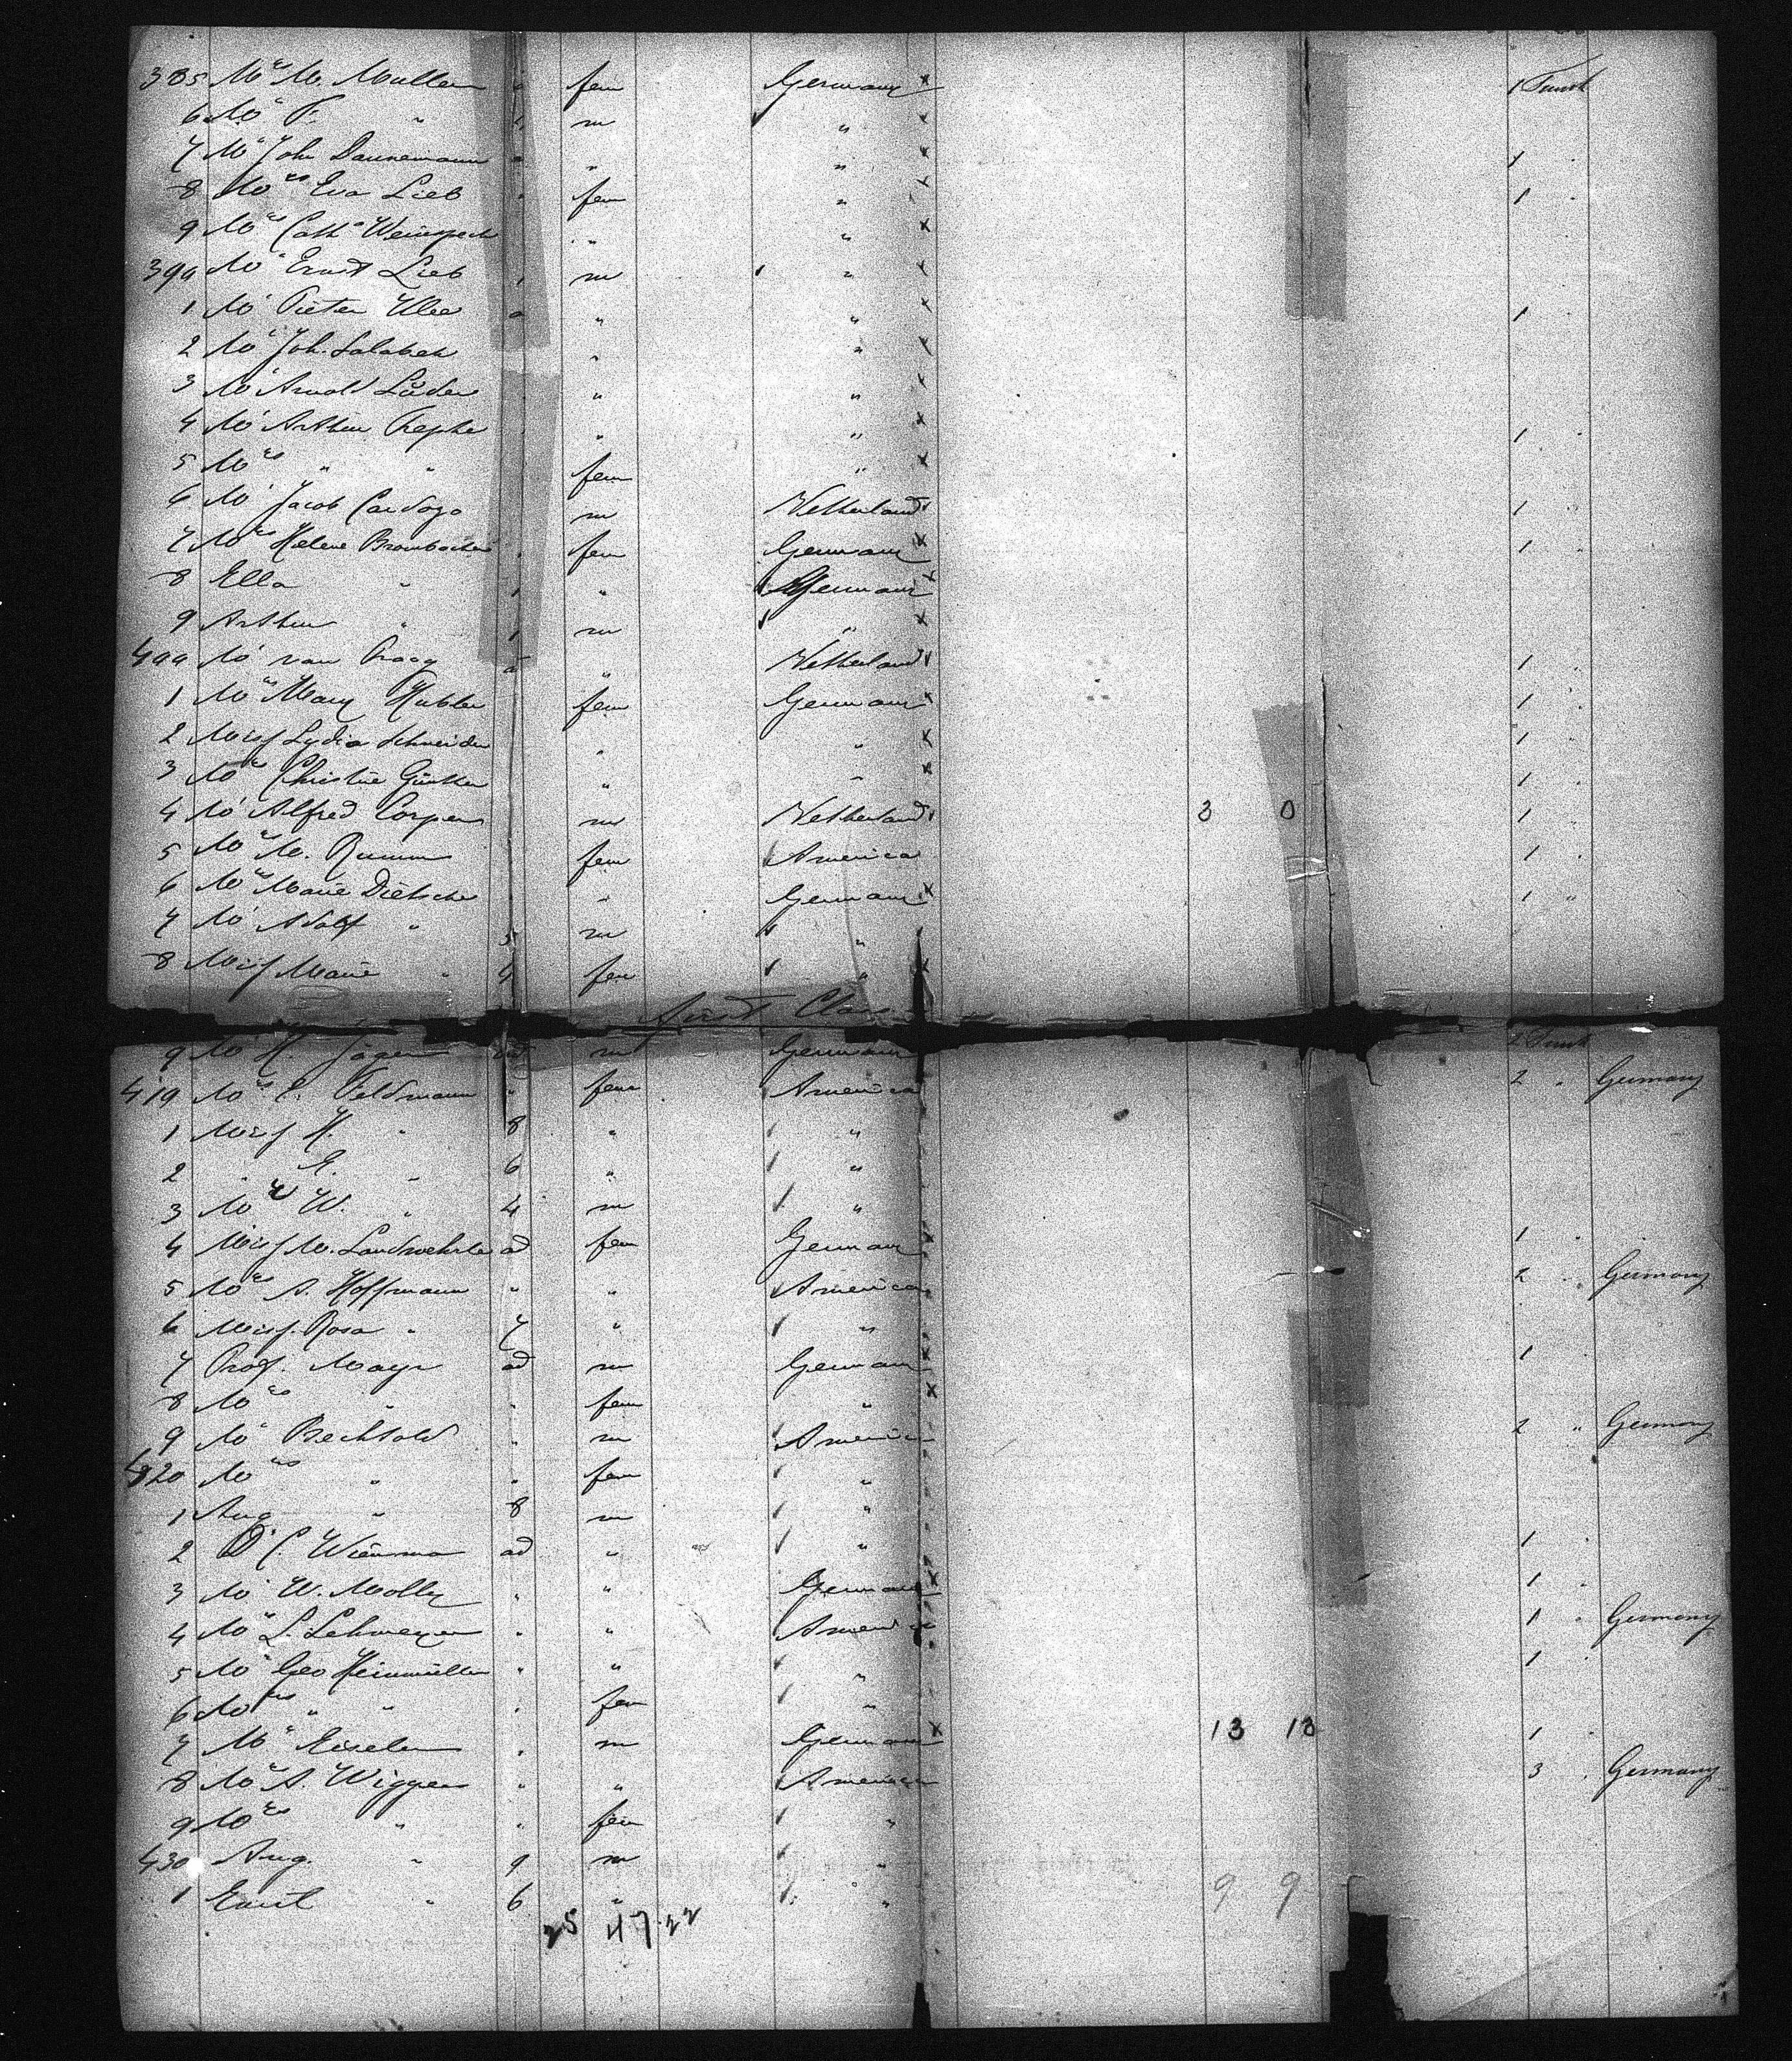 385 Mrs M. Muller " fem Germany x 1 Trunk
6 Mr F. " 4 m " x
7 Mr John Dannemann " " x 1 "
8 Mrs Eva Lieb " fem " x 1 "
9 Mrs Cath " " x
390 Mr Ernst Lieb 1 m " x
1 Mr Pieter Ulee " " x 1 "
2 Mr Joh. " " x
3 Mr Arnold Lüders " " x
4 Mr Arthur " " x 1 "
5 Mrs " " fem " x
6 Mr Jacob Cardozo m Netherland 1 "
7 Mrs Helene Brombacher " fem Germany x 1 "
8 Ella " 1 " Germany x
9 Arthur " 1 m " x
400 Mr van Praag " Netherland 1 "
1 Mrs Mary Hubler fem Germany x 1 "
2 Miss Lydia Schneider " " x 1 "
3 Mrs Christine Günther " " x 1 "
4 Mr Alfred Corpen m Netherland 3 0 1 "
5 Mrs M. Rumm fem America 1 "
6 Mrs Marie Dietsche " Germany x 1 "
7 Mr Adolf " 5 m "
8 Miss Marie " 4 fem " x
First Class
9 Mr H. Jäger ad m Germany 1 Trunk
410 Mrs E. Feldmann " fem America 2 " Germany
1 Miss H. " 8 " "
2 " E. " 6 " "
3 Mr W. " 4 m "
4 Miss M. Landwehrle ad fem Germany x 1 "
5 Mrs A. Hoffmann " " America 2 " Germany
6 Miss Rosa " 7 " "
7 Prof. Mayr ad m Germany x 1 "
8 Mrs " " fem " x
9 Mr Bechtold " m America 2 " Germany
420 Mrs " " fem "
1 Aug " 8 m "
2 Dr C. Wiersma ad " " 1 "
3 Mr W. Molly " " Germany x 1 "
4 Mr L. Lehmeyer " " America 1 " Germany
5 Mr Geo Heinmüller " " " 1 "
6 Mrs " " " fem "
7 Mr Eiselen " m Germany x 13 13 1 "
8 Mr A. Wiggers " " America 3 " Germany
9 Mrs " " fem "
430 Aug. " 9 m "
1 Ernst " 6 " " 9 9
25 47 22